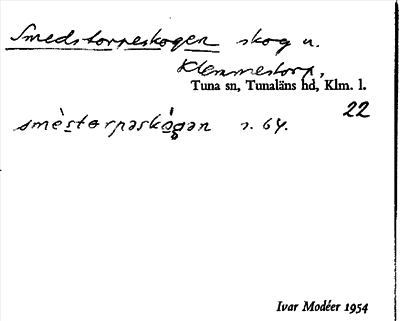 Smedstorpeskogen skog u.
Klemmestorp,
Tuna sn, Tunaläns hd, Klm. l.
22
smèstorpəskógən s. 64.
Ivar Modéer 1954